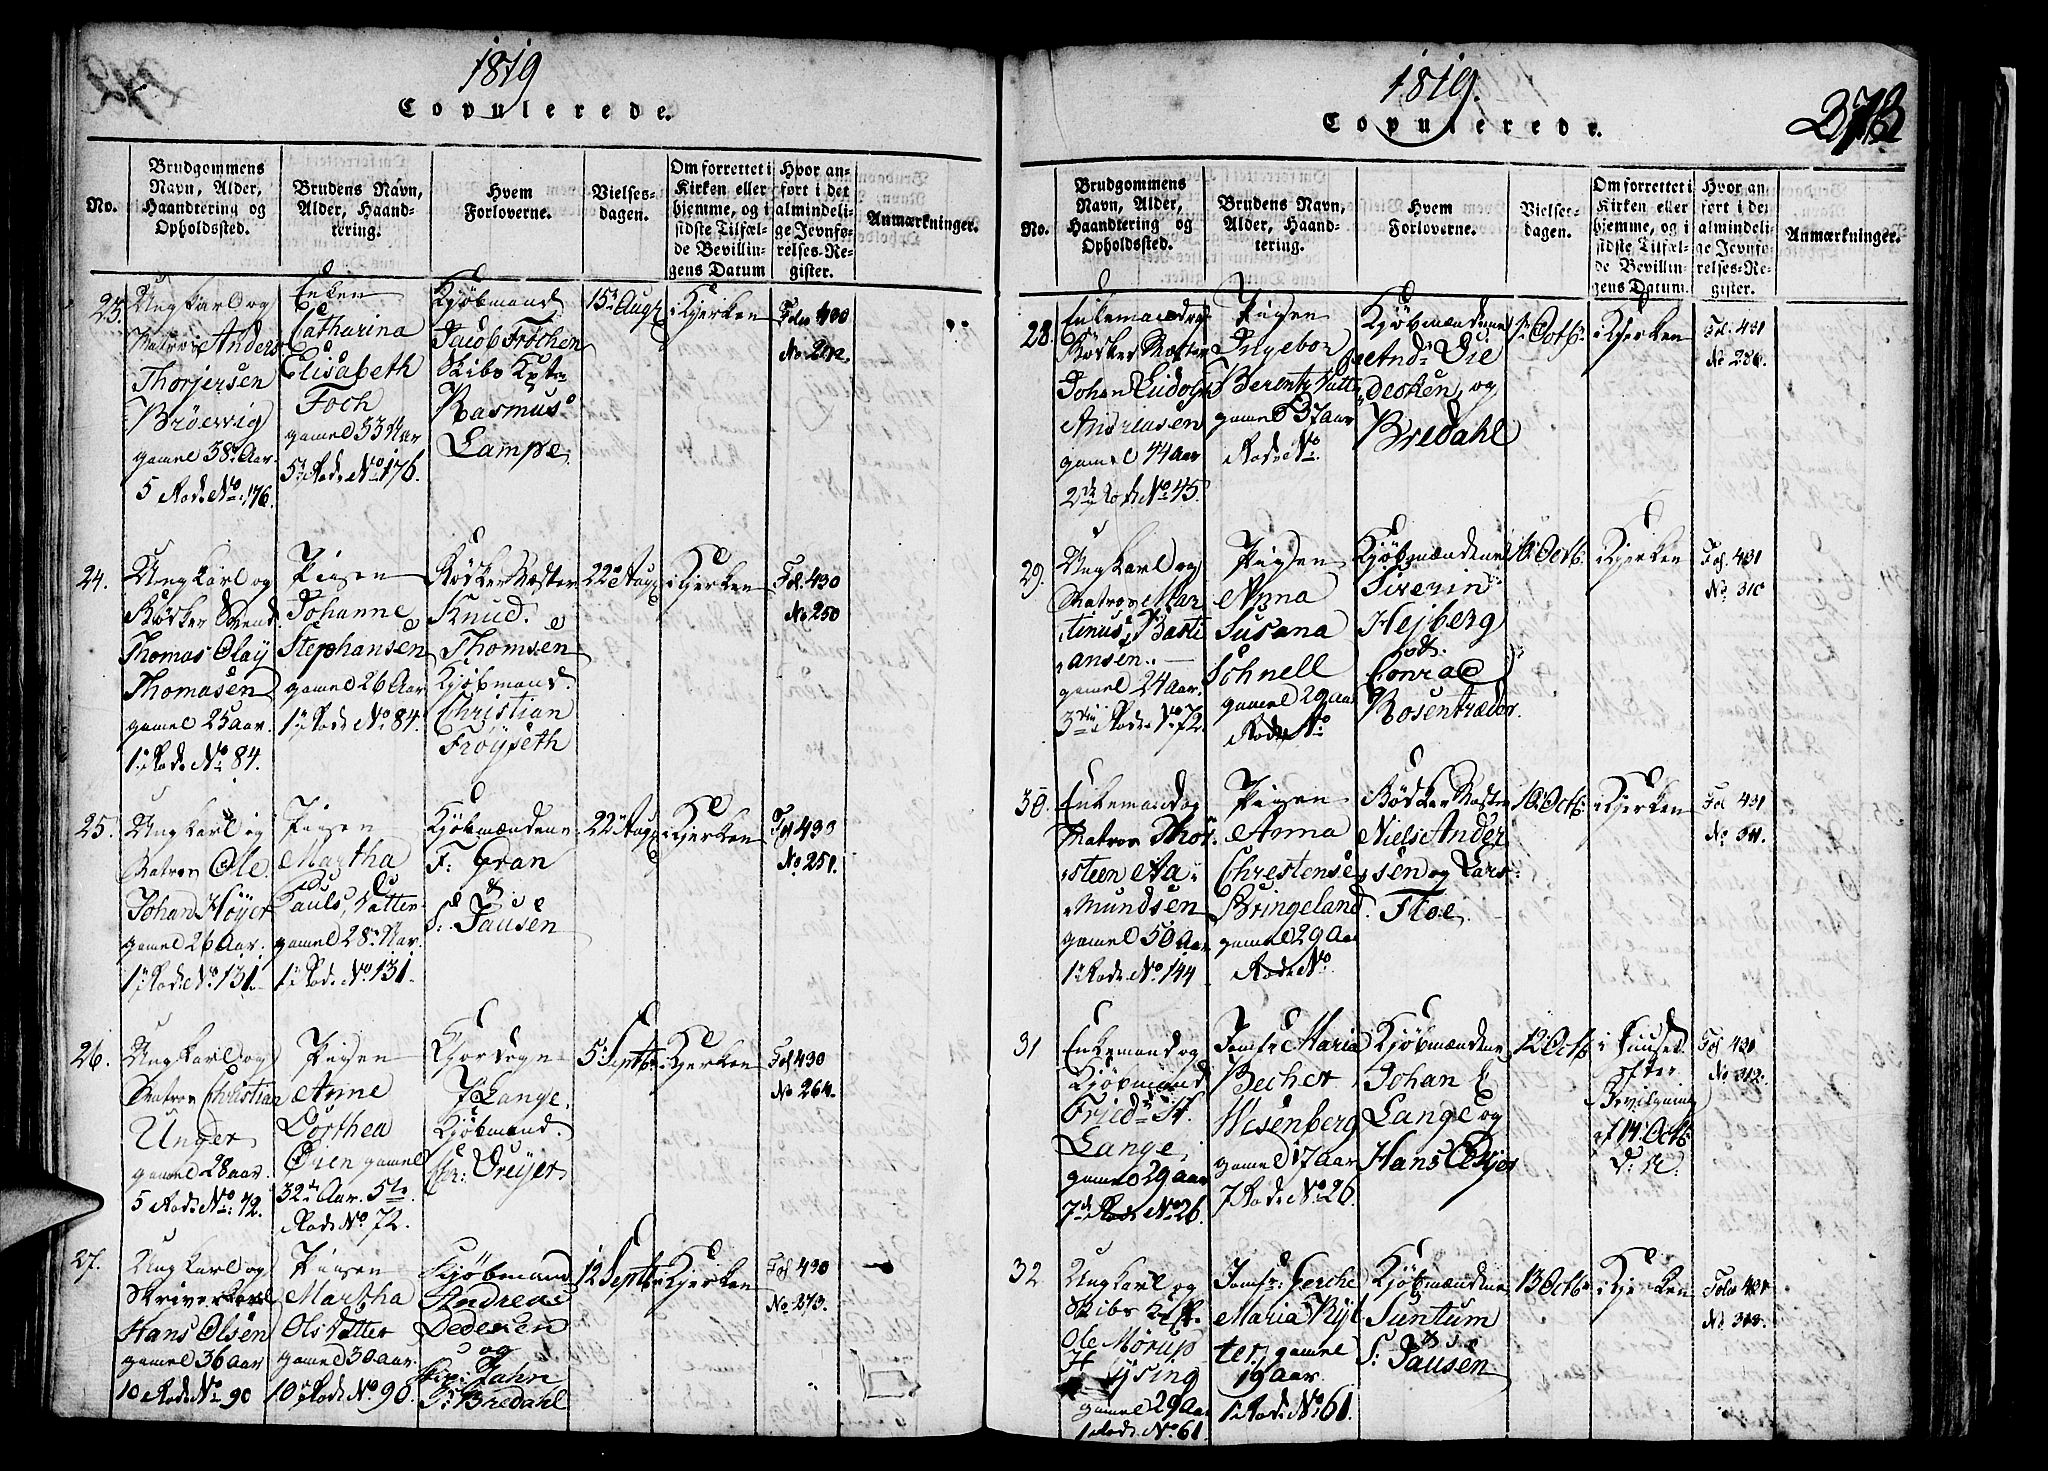 1819
Copulerede.
No.
Brudgommens
Navn, Alder,
Haandtering og
Opholdssted.
Brudens Navn,
Alder, Haand-
tering.
Hvem
Forloverne.
Vielses-
dagen.
Om forrettet i
Kirken eller
hjemme, og i
sidste Tilfæl-
de Bevillin-
gens Datum
Hvor an-
ført i det
almindeli-
ge Jevnfø-
relses-Re-
gister.
Anmærkninger.
23.
Ungkarl og
Matros Anders
Thorjersen
Brøevig
gamel 38 Aar
5 Rode No 176.
Enken
Catharina
Elisabeth
Foch
gamel 53 Aar
5 Rode No 176.
Kjøbmand
Jacob Frochen
Skibs Kptn
Rasmus
Lampe.
15 Aug
i Kjerken
Folio 430
No 242.
24.
Ungkarl og
Bødker Svend
Thomas Olay
Thomasen
gamel 25 aar
1 Rode No 84.
Pigen
Johanne
Stephansen
gamel 26 Aar
1 Rode No 84.
Bødker Mester
Knud
Thomsen
Kjøbmand
Christian
Frøyseth
22 Aug
i Kjerken
Fol. 430
No 250
25.
Ungkarl og
Matros Ole
Johan Høyer
gamel 26 Aar.
1 Rode No 131.
Pigen
Martha
Pauls Datter
gamel 28 Aar.
1 Rode No 131.
Kjøbmændene
F: Gran
&
S: Pausen
22 Aug
i Kjerken
Fol 430
No 251.
26.
Ungkarl og
Matros Christian
Unger
gamel 28 aar.
5 Rode No 72.
Pigen
Anne
Dorthea
Øien gamel
32 Aar. 5te
Rode No 72.
Kjordegn
Lange.
Kjøbmand
Chr: Dreyer
5 Septbr
i Kjerken
Fol 430
No 264.
27.
Ungkarl og
Skriverkarl
Hans Olsen
gamel 36 aar
10 Rode No 90
Pigen
Martha
Ols Datter
gamel 30 aar.
10 Rode No 90
Kjøbmand
Andreas
Dedeken
og
Jahn
Bredahl
12 Septbr
i Kjerken
Fol 430
No 273.
1819.
Copulerede.
373
No.
Brudgommens
Navn, Alder,
Haandtering og
Opholdssted.
Brudens Navn,
Alder, Haand-
tering.
Hvem
Forloverne.
Vielses-
dagen.
Om forrettet i
Kirken eller
hjemme, og i
sidste Tilfæl-
de Bevillin-
gens Datum.
Hvor an-
ført i det
almindeli-
ge Jevnfø-
relses-Re-
gister.
Anmærkninger.
28.
Enkemand og
Bødker Mester
Johan Ludolph
Andriesen
gamel 44 Aar
2 Rode No 45.
Pigen
Ingebor
Berentz Datt
gamel 37 aar
Rode No
Kjøbmændene
And: Die
decken, og
Bredahl
1 Octb.
i Kjerken
Fol. 431
No 286.
29.
Ungkarl og
Matros Mar
tinus Basti
ansen.
gamel 24 Aar.
3 Rode No 72.
Pigen
Anna
Susana
Schnell
gamel 29 aar
Rode No
Kjøbmændene
Siverin
Hejberg
&
Conrad
Rosentræder.
10 Octb.
i Kjerken
Fol. 431
No 310
30.
Enkemand og
Matros Thor
steen Aa
mundsen
gamel 50 Aar
1 Rode No 144
Pigen
Anna
Christense
Bringeland.
gamel 29 Aar
Rode No
Bødker Mester
Niels Ander
sen og Lars
Floe.
10 Octb.
i Kjerken
Fol 431
No 311.
31
Enkemand og
Kjøbmand
Fried: H.
Lange.
gamel 29 aar
7 Rode No 26.
Jomfr Maria
Becher
Wesenberg
gamel 17 aar
7 Rode No 26.
Kjøbmændene
Johan E
Lange og
Hans
12 Octb
i Huuset
efter
Bevilgning
af 14 Octb
d: A.
Fol 431
No 312.
32
Ungkarl og
Skibs Kapt.
Ole Mørup
Hysing
gamel 29 Aar
1 Rode No 61.
Jomfr: Gerche
Maria Ryt
ter, gamel
19 aar.
1 Rode No 61.
Kjøbmændene
Suntum
&
S: Pausen
13 Octb
i Kjerken
Folio 431
No 313.